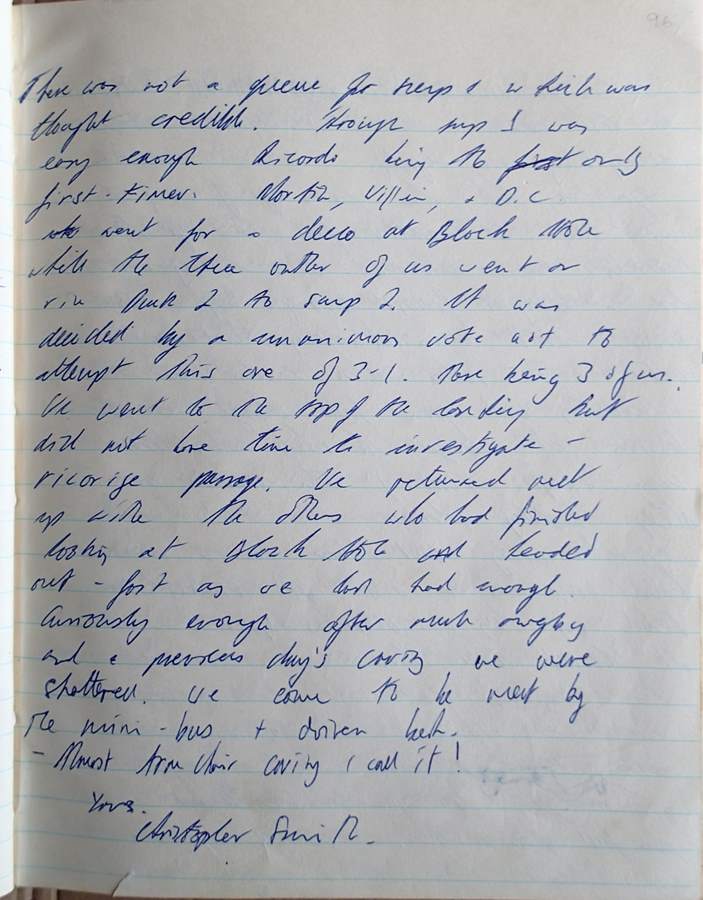 There was not a queue for sump 1 which was
thought credible. Through sump 1 was
easy enough Ricardo being the first only
first-timer. Martin, , + D.C
who went for a decco at Block Hole
while the three other of us went on
via Duck 2 to sump 2. It was
decided by a unanimous vote not to
attempt this one of 3-1. There being 3 of us.
We went to the top of the landing but
did not have time to investigate -
passage. We returned met
up with the others who had finished
looking at Block Hole and headed
out - fast as we had had enough.
Curiously enough after much
and a previous day's caving we were
shattered. We came to be met by
the mini-bus + driven back.
- Almost Arm Chair caving I call it!
Yours.
Christopher Smith.
96